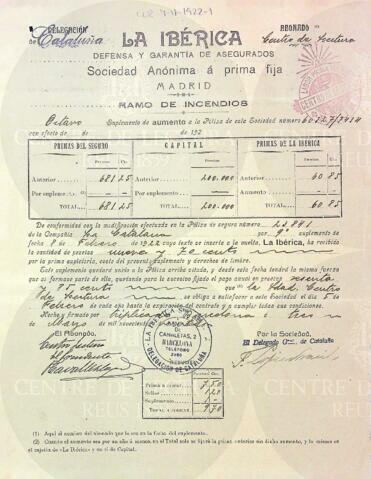 COR 4-11-1922-1
DELEGACIÓN
de Cataluña
ABONADO
Centro de Lectura
LA IBÉRICA
DEFENSA Y GARANTÍA DE ASEGURADOS
Sociedad Anónima á prima fija
MADRID
RAMO DE INCENDIOS
Octavo Suplemento de aumento a la Póliza de esta Sociedad número
con efecto de de de 192
PRIMAS DEL SEGURO CAPITAL PRIMAS DE LA IBÉRICA
Pesetas Cts. Pesetas Pesetas Cts.
Anterior 681 25 Anterior 200.000 Anterior 60 85
Por suplemento Por suplemento Aumento
TOTAL 681 25 TOTAL 200.000 TOTAL 60 85
De conformidad con la modificación efectuada en la Póliza de seguro número
de la Compañía La Catalana por 9º suplemento de
fecha 8 de Febrero de 1922 cuyo texto se inserta a la vuelta. La Ibérica, ha recibido
la cantidad de pesetas nueve y 70 cents
por la prima supletoria, costo del presente suplemento y derechos de timbre.
Este suplemento quedará unido a la Póliza arriba citada, y desde esta fecha tendrá la misma fuerza
que si formase parte de ella, quedando para lo sucesivo fijado el pago anual en pesetas sesenta
y 85 cents que la Sdad. Centro
de Lectura se obliga a satisfacer a esta Sociedad el día 5 de
Febrero de cada año hasta la expiración del contrato y a cumplir todas sus condiciones.
Hecho y firmado por triplicado en Barcelona a tres de
Mayo de mil novecientos
El Abonado,
Por la Sociedad,
El Delegado Gral. de Cataluña
LA IBÉRICA
CANALETAS, 2
BARCELONA
TELÉFONO
DELEGACIÓN DE CATALUÑA
Prima a cobrar 7.50
Sellos 1.20
Suplemento 1.-
TOTAL A COBRAR 9.70
(1) Aquí el nombre del abonado que lo sea en la fecha del suplemento.
(2) Cuando el aumento sea por un año ó menos, en el Total solo se fijará la prima anterior sin dicho aumento, y lo mismo en
el cajetín de «La Ibérica» y en el de Capital.